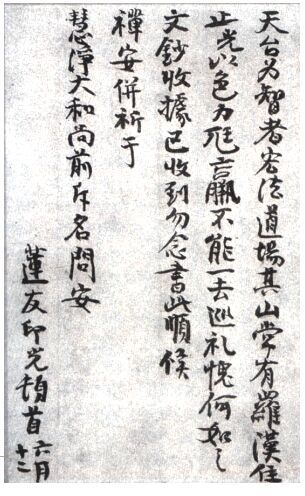 天台为智者宏法道場其山常有羅漢住
止光以色力尫羸不能一去巡礼愧何如之
文鈔收據已收到勿念書此順候
禪安併祈于
慧淨大和尚前斥名問安
蓮友印光頓首 六月
十二